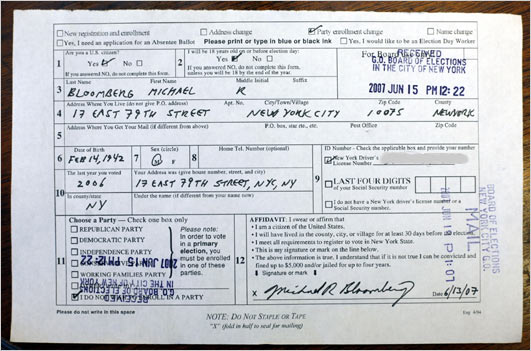 New registration and enrollment Address change Party enrollment change Name change
Yes, I need an application for an Absentee Ballot Please print or type in blue or black ink Yes, I would like to be an Election Day Worker
For Board Use Only
RECEIVED
G.O. BOARD OF ELECTIONS
IN THE CITY OF NEW YORK
2007 JUN 15 PM 12: 22
1 Are you a U.S. citizen? Yes No
If you answered NO, do not complete this form.
2 I will be 18 years old on or before election day:
Yes No
If you answered NO, do not complete this form, unless you will be 18 by the end of the year.
3 Last Name First Name Middle Initial Suffix
BLOOMBERG MICHAEL R
4 Address Where You Live (do not give P.O. address) Apt. No. City/Town/Village Zip Code County
17 EAST 79TH STREET NEW YORK CITY 10075 NEWYORK
5 Address Where You Get Your Mail (if different from above) P.O. box, star rte., etc. Post Office Zip Code
6 Date of Birth
FEB 14, 1942
7 Sex (circle)
M F
8 Home Tel. Number (optional)
9 ID Number - Check the applicable box and provide your number
New York Driver's
License Number
LAST FOUR DIGITS
of your Social Security number
I do not have a New York driver's license number or a Social Security number.
10 The last year you voted
2006
Your Address was (give house number, street, and city)
17 EAST 79TH STREET, NYC, NY
In county/state
NY
Under the name (if different from your name now)
11 Choose a Party — Check one box only
REPUBLICAN PARTY
DEMOCRATIC PARTY
INDEPENDENCE PARTY
CONSERVATIVE PARTY
WORKING FAMILIES PARTY
I DO NOT WISH TO ENROLL IN A PARTY
Please note:
In order to vote
in a primary
election, you
must be enrolled
in one of these
parties.
G.O. BOARD OF ELECTIONS
IN THE CITY OF NEW YORK
2007 JUN 15 PM 12: 22
12 AFFIDAVIT: I swear or affirm that
• I am a citizen of the United States.
• I will have lived in the county, city, or village for at least 30 days before the election.
• I meet all requirements to register to vote in New York State.
• This is my signature or mark on the line below.
• The above information is true. I understand that if it is not true I can be convicted and
fined up to $5,000 and/or jailed for up to four years.
Signature or mark
X Michael R. Bloomberg Date 6/13/07
BOARD OF ELECTIONS
NEW YORK CITY G.O.
MAIL
Please do not write in this space
NOTE: DO NOT STAPLE OR TAPE
"X" (fold in half to seal for mailing)
Eng. 4/04